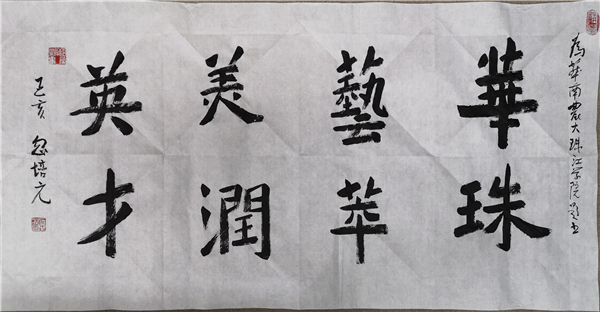 為華南農大珠江学院题书
華珠
藝萃
美潤
英才
己亥 忽培元